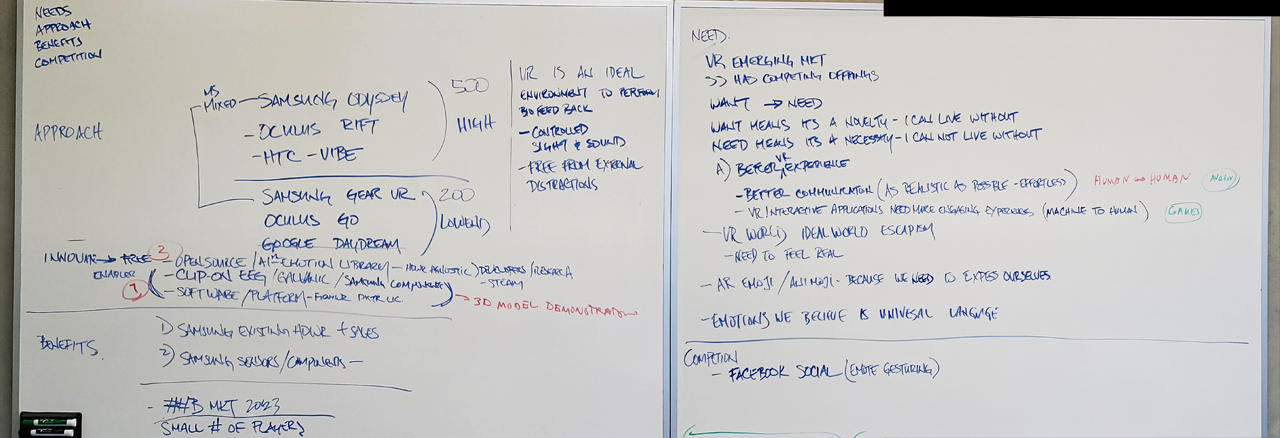 NEEDS
APPROACH
BENEFITS
COMPETITION
APPROACH
MS
MIXED - SAMSUNG ODYSSEY
- OCULUS RIFT
- HTC - VIBE
500
HIGH
SAMSUNG GEAR VR
OCULUS GO
GOOGLE DAYDREAM
200
LOWEND
VR IS AN IDEAL
ENVIRONMENT TO PERFORM
BIOFEEDBACK
- CONTROLLED
SIGHT & SOUND
- FREE FROM EXTERNAL
DISTRACTIONS
2
INNOVAR → FREE - OPENSOURCE / EMOTION LIBRARY - HDWR AGNOSTIC) DEVELOPERS / RESEARCH
- STEAM
ENABLER
- CLIP-ON EEG / GALVANIC / SAMSUNG COMPONENTS
1
- SOFTWARE / PLATFORM -
→ 3D MODEL DEMONSTRATION
BENEFITS.
1) SAMSUNG EXISTING HDWR + SALES
2) SAMSUNG SENSORS/COMPONENTS -
- ##B MKT 2023
SMALL # OF PLAYERS
NEED.
VR EMERGING MKT
>> HAS COMPETING OFFRINGS
WANT → NEED
WANT MEANS ITS A NOVELTY - I CAN LIVE WITHOUT
NEED MEANS ITS A NECESSITY - I CAN NOT LIVE WITHOUT
A) BETTER VR EXPERIENCE
- BETTER COMMUNICATION (AS REALISTIC AS POSSIBLE - EFFORTLESS) HUMAN ↔ HUMAN AVATAR
- VR INTERACTIVE APPLICATIONS NEED MORE ENGAGING EXPERIENCES (MACHINE TO HUMAN) GAMES
- VR WORLD IDEAL WORLD ESCAPISM
- NEED TO FEEL REAL
- AR EMOJI / ANIMOJI - BECAUSE WE NEED TO EXPESS OURSELVES
- EMOTIONS WE BELIEVE IS UNIVESAL LANGUAGE
COMPETION
- FACEBOOK SOCIAL (EMOTE GESTURING)